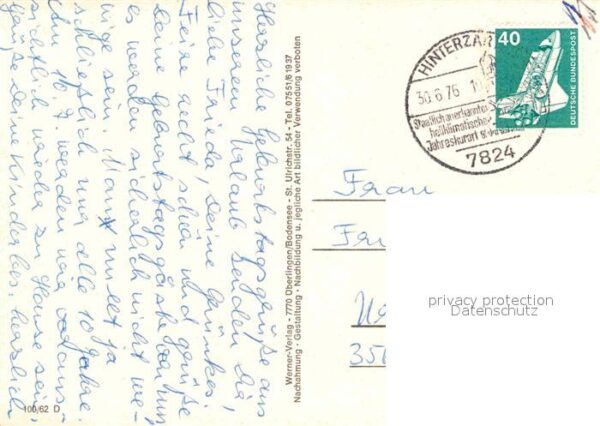 Herzliche Geburtstagsgrüße aus
unserem Urlaub sendet Dir,
liebe Frieda, Deine Grünkes.
Feire recht schön und grüße
Deine Geburtstagsgäste von uns
es werden sicherlich nicht we-
nige sein. Man wird ja
schließlich nur alle 10 Jahre
Am 10.7 werden wir voraus-
sichtlich wieder zu Hause sein.
Grüße Deine Kinder lb. herzlich
100/62 D
Werner-Verlag - 7770 Überlingen/Bodensee - St. Ulrichstr. 54 - Tel. 07551/61937
Nachahmung - Gestaltung - Nachbildung u. jegliche Art bildlicher Verwendung verboten
HINTERZAR
30.6.76
Staatlich anerkannter
heilklimatischer
Jahreskurort
7824
40
DEUTSCHE BUNDESPOST
Frau
Fri
350
privacy protection
Datenschutz